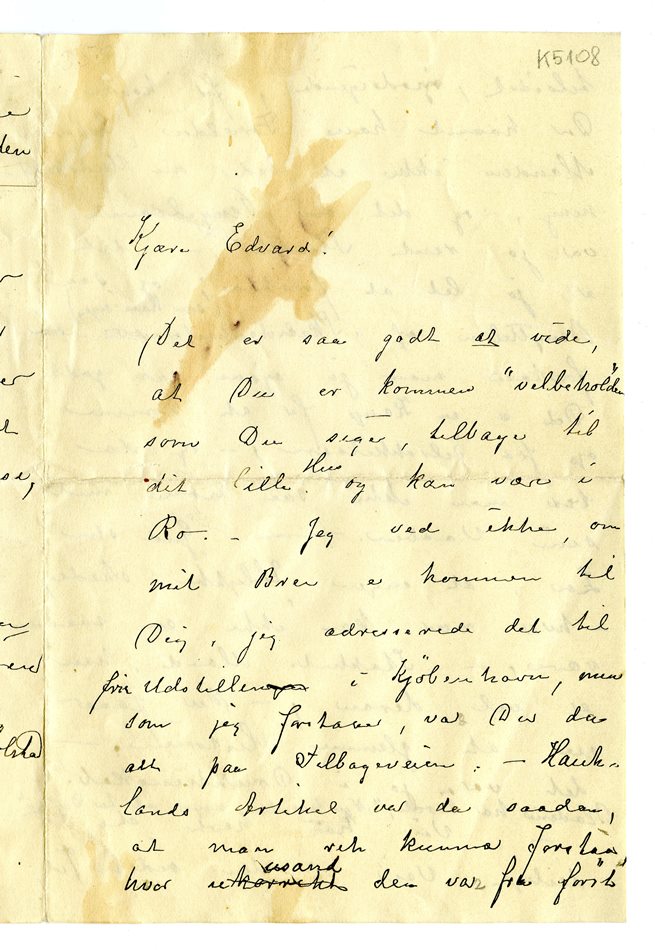 K5108
Kjære Edvard!
Det er saa godt at vide,
at Du er kommen "velbeholden"
som Du siger, tilbage til
dit lille Hus og kan være i
Ro. – Jeg ved ikke, om
mit Brev er kommen til
Dig, jeg adresserede det til
fri Udstillingen i Kjøbenhavn, men
som jeg forstaaer, var Du da
alt paa Tilbageveien. – Hauk-
lands Artikel var da saadan,
at man ret kunne forstaa,
hvor usand den var fra først